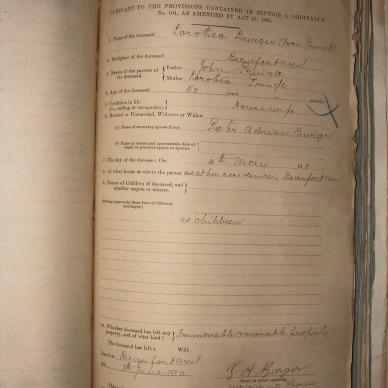 PURSUANT TO THE PROVISIONS CONTAINED IN SECTION 9, ORDINANCE
No. 104, AS AMENDED BY ACT
1. Name of the deceased Dorothea Burger born Pringle
2. Birthplace of the deceased Beaufort West
3. Names of the parents of the deceased { Father John Pringle
Mother Dorothea Pringle
4. Age of the deceased 60 years months
5. Condition in life (i.e., calling or occupation) } Housewife
6. Married or Unmarried, Widower or Widow
(a) Name of surviving spouse if any Pieter Adrian Burger
(b) Name or names and approximate date of death of previous spouse or spouses
7. The day of the decease: On
8. At what house or where the person died at her residence, Beaufort West
9. Names of Children of deceased, and whether majors or minors. }
(Stating separately those born of different marriages.)
no children
10. Whether deceased has left any property, and of what kind? } Immovable & movable property
The deceased has left a Will.
Dated at Beaufort West
the June
P. A. Burger